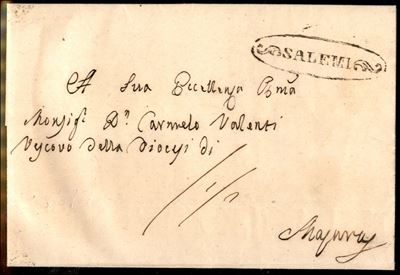 SALEMI
A Sua Eccellenza Rma
Monsigr. Dn. Carmelo Valenti
Vescovo della Diocesi di
Mazara